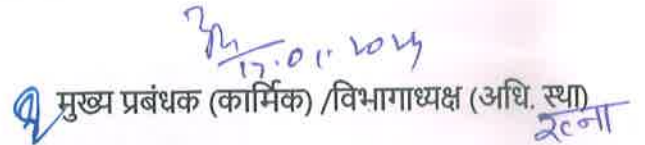 17.01.2024
मुख्य प्रबंधक (कार्मिक) /विभागाध्यक्ष (अधि. स्था)